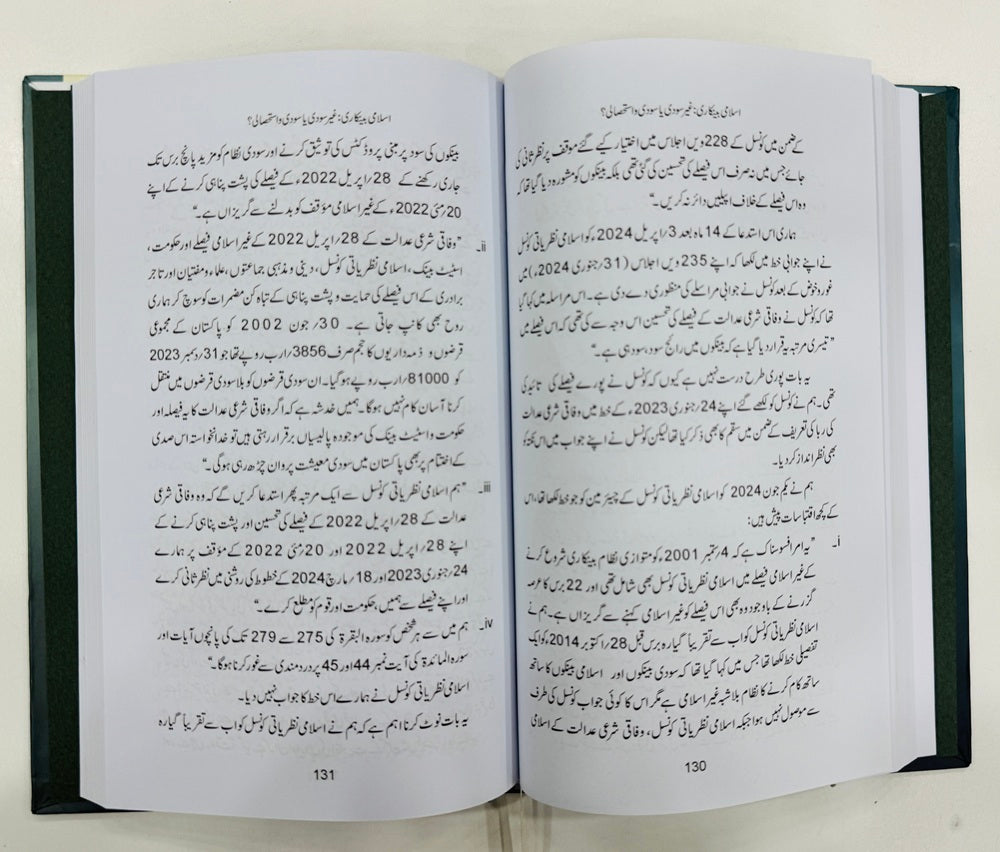 اسلامی بینکاری: غیر سودی یا سودی و استحصالی؟
کے ضمن میں کونسل کے 228ویں اجلاس میں اختیار کیے گئے موقف پر نظر ثانی کی
جائے جس میں نہ صرف اس فیصلے کی تحسین کی گئی تھی بلکہ بینکوں کو مشورہ دیا گیا تھا کہ
وہ اس فیصلے کے خلاف اپیلیں دائر نہ کریں۔"
ہماری اس استدعا کے 14 ماہ بعد 3/اپریل 2024ء کو اسلامی نظریاتی کونسل
نے اپنے جوابی خط میں لکھا کہ اپنے 235 ویں اجلاس (31/جنوری 2024ء) میں
غور و خوض کے بعد کونسل نے جوابی مراسلے کی منظوری دے دی ہے۔ اس مراسلہ میں کہا گیا
تھا کہ کونسل نے وفاقی شرعی عدالت کے فیصلے کی تحسین اس وجہ سے کی تھی کہ اس فیصلے میں
"تیسری مرتبہ یہ قرار دیا گیا ہے کہ بینکوں میں رائج سود، سود ہی ہے۔"
یہ بات پوری طرح درست نہیں ہے کیوں کہ کونسل نے پورے فیصلے کی تائید کی
تھی۔ ہم نے کونسل کو لکھے گئے اپنے 24/جنوری 2023ء کے خط میں وفاقی شرعی عدالت
کی ربا کی تعریف کے ضمن میں سقم کا بھی ذکر کیا تھا لیکن کونسل نے اپنے جواب میں اس نکتہ کو
بھی نظر انداز کر دیا۔
ہم نے یکم جون 2024 کو اسلامی نظریاتی کونسل کے چیئرمین کو جو خط لکھا تھا، اس
کے کچھ اقتباسات پیش ہیں:
i۔ "یہ امر افسوسناک ہے کہ 4/ستمبر 2001ء کو متوازی نظام بینکاری شروع کرنے
کے غیر اسلامی فیصلے میں اسلامی نظریاتی کونسل بھی شامل تھی اور 22 برس کا عرصہ
گزرنے کے باوجود وہ بھی اس فیصلے کو غیر اسلامی کہنے سے گریزاں ہے۔ ہم نے
اسلامی نظریاتی کونسل کو اب سے تقریباً گیارہ برس قبل 28/اکتوبر 2014ء کو ایک
تفصیلی خط لکھا تھا جس میں کہا گیا تھا کہ سودی بینکوں اور اسلامی بینکوں کا ساتھ
ساتھ کام کرنے کا نظام بلاشبہ غیر اسلامی ہے مگر اس کا کوئی جواب کونسل کی طرف
سے موصول نہیں ہوا جبکہ اسلامی نظریاتی کونسل، وفاقی شرعی عدالت کے اسلامی
130
اسلامی بینکاری: غیر سودی یا سودی و استحصالی؟
بینکوں کی سود پر مبنی پروڈکٹس کی توثیق کرنے اور سودی نظام کو مزید پانچ برس تک
جاری رکھنے کے 28/اپریل 2022ء کے فیصلے کی پشت پناہی کرنے کے اپنے
20/مئی 2022ء کے غیر اسلامی مؤقف کو بدلنے سے گریزاں ہے۔"
ii۔ "وفاقی شرعی عدالت کے 28/اپریل 2022 کے غیر اسلامی فیصلے اور حکومت،
اسٹیٹ بینک، اسلامی نظریاتی کونسل، دینی و مذہبی جماعتوں، علماء و مفتیان اور تاجر
برادری کے اس فیصلے کی حمایت و پشت پناہی کے تباہ کن مضمرات کو سوچ کر ہماری
روح بھی کانپ جاتی ہے۔ 30/جون 2002 کو پاکستان کے مجموعی
قرضوں و ذمہ داریوں کا حجم صرف 3856/ارب روپے تھا جو 31/دسمبر 2023
کو 81000/ارب روپے ہو گیا۔ ان سودی قرضوں کو بلا سودی قرضوں میں منتقل
کرنا آسان کام نہیں ہوگا۔ ہمیں خدشہ ہے کہ اگر وفاقی شرعی عدالت کا یہ فیصلہ اور
حکومت و اسٹیٹ بینک کی موجودہ پالیسیاں برقرار رہتی ہیں تو خدانخواستہ اس صدی
کے اختتام پر بھی پاکستان میں سودی معیشت پروان چڑھ رہی ہوگی۔"
iii۔ "ہم اسلامی نظریاتی کونسل سے ایک مرتبہ پھر استدعا کریں گے کہ وہ وفاقی شرعی
عدالت کے 28/اپریل 2022 کے فیصلے کی تحسین اور پشت پناہی کرنے کے
اپنے 28/اپریل 2022 اور 20/مئی 2022 کے مؤقف پر ہمارے
24/جنوری 2023 اور 18/مارچ 2024 کے خطوط کی روشنی میں نظر ثانی کرے
اور اپنے فیصلے سے ہمیں، حکومت اور قوم کو مطلع کرے۔"
iv۔ ہم میں سے ہر شخص کو سورہ البقرۃ کی 275 سے 279 تک کی پانچوں آیات اور
سورہ المائدۃ کی آیت نمبر 44 اور 45 پر دردمندی سے غور کرنا ہوگا۔"
اسلامی نظریاتی کونسل نے ہمارے اس خط کا جواب نہیں دیا۔
یہ بات نوٹ کرنا اہم ہے کہ ہم نے اسلامی نظریاتی کونسل کو اب سے تقریباً گیارہ
131